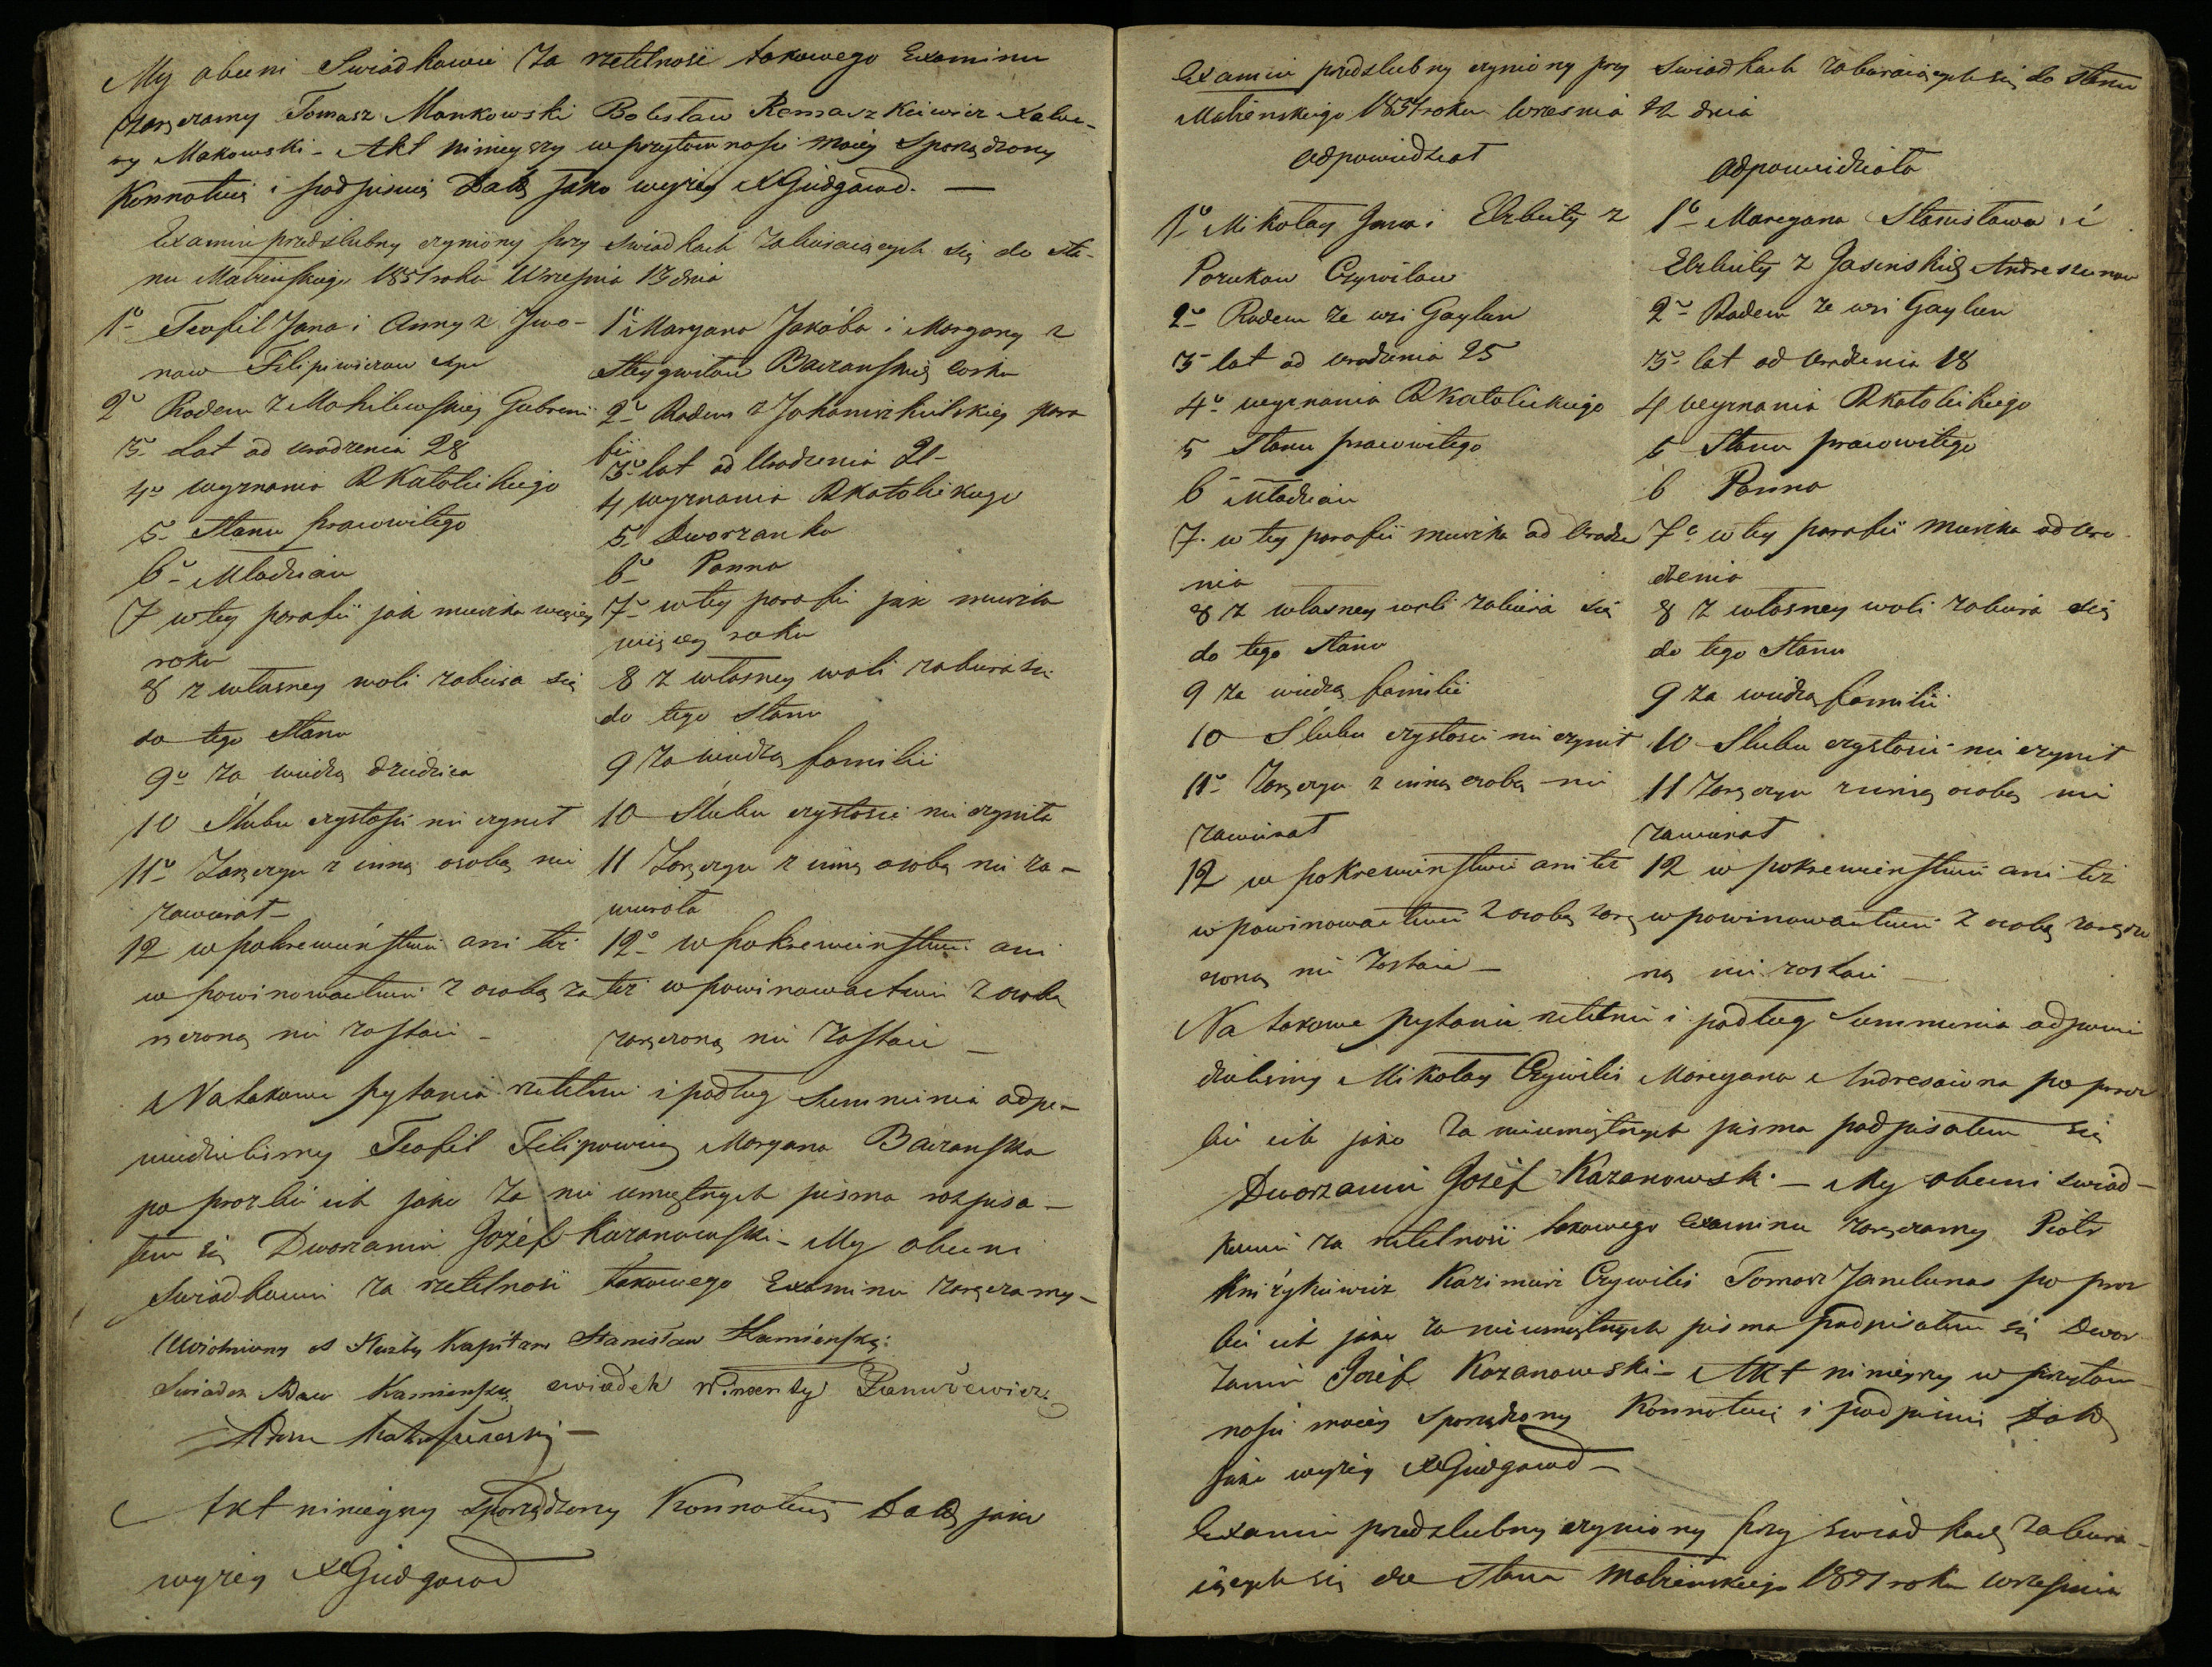 My obecni Swiadkowie Za rzetelność takowego Examinu
Zaręczamy Tomasz Mankowski Bolesław Remaszkiewicz
Makowski – Akt ninieyszy w przytomności moiéy Sporządzony
Konnotuię i podpisuię Datą jako wyżéy X Giedgowd. —
Examin przedslubny czyniony przy swiadkach zabieraiących się do sta-
nu Małżeńskiego 1851 roku Września 13 dnia
1º Teofil Jana i Anny z Jwo-
now Filipowiczow syn
2º Rodem z Mohilewskiéj Gubernii
3º Lat od urodzenia 28
4º wyznania RKatolickiego
5º Stanu pracowitego
6º Młodzian
7 w tey parafii jak mieszka więcéy
roku
8 z własney woli zabiera się
do tego stanu
9º za wiedzą dziedzica
10 Ślubu czystości nie czynił
11º Zaręczyn z inną osobą nie
zawierał –
12 w pokrewieństwie ani też
w powinowactwie z osobą za
ręczoną nie zostaie –
1º Maryana Jakóba i Maryany z
Baczanskiéj corka
2º Rodem z Johaniszkielskiéy para
fii
3º lat od Urodzenia 21 –
4 wyznania RKatolickiego
5º Dworzanka
6º Panna
7º w tey parafii jak mieszka
więcey roku
8 z własney woli zabiera się
do tego stanu
9 Za wiedzą familii
10 Ślubu czystości nie czyniła
11 Zaręczyn z inną osobą nie za –
wierała
12º w pokrewieństwie ani
też w powinowactwie z osobą
zaręczoną nie zostaie —
Na takowe pytania rzetelnie i podług Sumnienia odpo –
wiedzielismy Teofil Filipowicz Maryana Baczanska
po prozbie ich jako za nie umiętnych pisma rozpisa –
łem się Dworzanin Jozéf Kazanowski – My obecni
Swiadkowie za rzetelność takowego Examinu zaręczamy –
Uwolniony od Służby Kapitan Stanisław Kamienski:
Swiadek Adam Kamienski swiadek Wincenty
Adam
Akt ninieyszy sporządzony Konnotuię Datą jako
wyżey X Giedgowd
Examin przedslubny czyniony przy swiadkach zabieraiących się do stanu
Małżenskiego 1851 roku Wrzesnia dnia
Odpowiedział
1º Mikołay Jana i Elzbiety z
Porukow Czywilow
2º Rodem ze wsi Gaylun
3º lat od urodzenia 25
4º wyznania RKatolickiego
5 Stanu pracowitego
6 – Młodzian
7. w tey parafii mieszka od Urodze
nia
8 z własney woli zabiera się
do tego stanu
9 za wiedzą familii
10 Slubu czystosci nie czynił
11º Zaręczyn z inną osobą nie
zawierał
12 w pokrewieństwie ani też
w powinowactwie z osobą zarę
czoną nie zostaie –
Odpowiedziała
1º Maryana Stanisława i
Elzbiety z Jasinskich Andreszunow
2º Rodem ze wsi Gaylun
3º lat od Urodzenia 18
4 wyznania RKatolickiego
5 Stanu pracowitego
6 Panna
7º w tey parafii mieszka od Uro
dzenia
8 z własney woli zabiera się
do tego stanu
9 za wiedzą familii
10 Slubu czystosci nie czynił
11 Zaręczyn z inną osobą nie
zawierał
12 w pokrewieństwie ani też
w powinowactwie z osobą zaręczo
ną nie zostaie –
Na takowe pytanie rzetelnie i podług Sumnienia odpowie
dzielismy Mikołay Czywilis Maryana po proz
bie ich jako za nieumiętnych pisma podpisałem się
Dworzanin Jozéf Kazanowski – My obecni swiad –
kowie za rzetelność takowego Examinu zaręczamy Piotr
Kazimierz Czywilis Tomasz Janelunas po proz
bie ich jako za nieumiętnych pisma podpisałem się Dwor
zanin Jozéf Kazanowski – Akt ninieyszy w przytom
nosci moiéy sporządzony Konnotuię i podpisuię Datą
jako wyżéy X Giedgowd –
Examin przedslubny czyniony przy swiadkach zabiera –
iących się do Stanu Małżenskiego 1851 roku wrzesnia